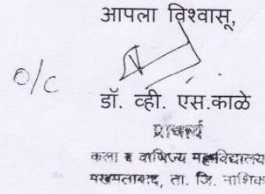 आपला विश्वासू,
O/C
डॉ. व्ही. एस.काळे
प्राचार्य
कला व वाणिज्य महाविद्यालय
ता. जि. नाशिक